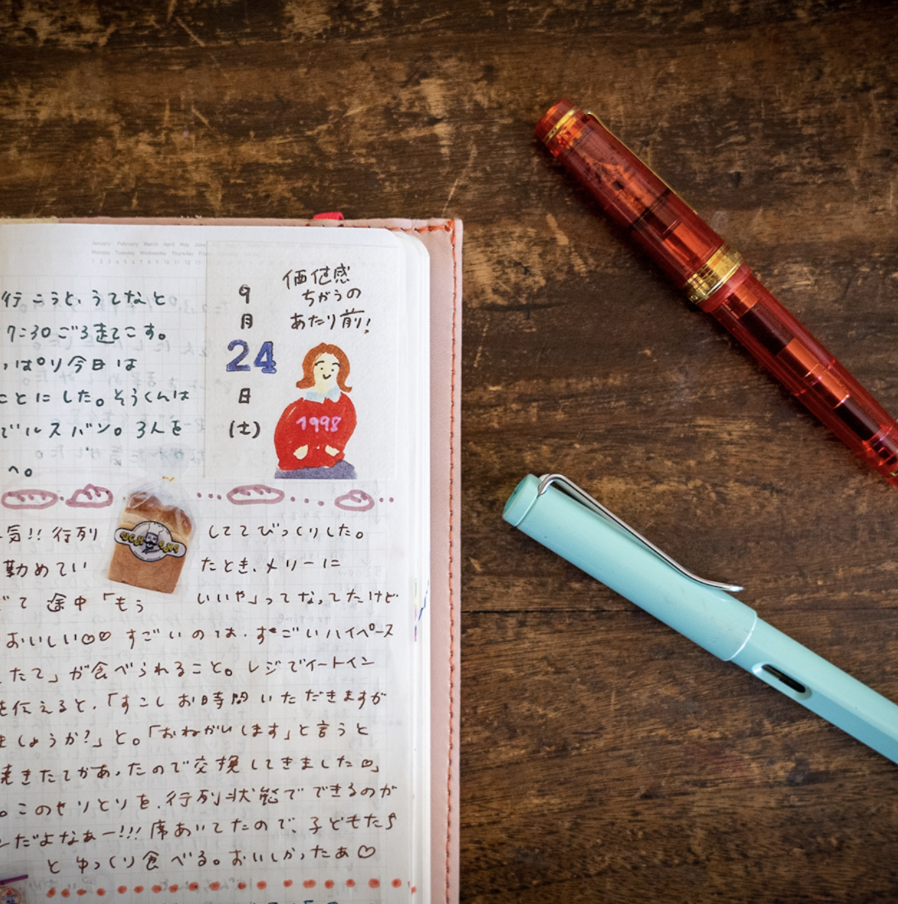 January February March April May June
Monday Tuesday Wednesday Thursday
価値感
ちがうの
あたり前!
9
月
24
日
(土)
1998
行こうと、うてなと
7:30ごろ起こす。
ぱり今日は
ことにした。そうくんは
でルスバン。3人を
へ。
気!!行列
しててびっくりした。
勤めてい
たとき、メリーに
て 途中「もう
いいや」ってなってたけど
おいしい♡♡ すごいのは、すごいハイペース
たて」が食べられること。レジでイートイン
を伝えると、「すこしお時間いただきますが
ましょうか?」と。「おねがいします」と言うと
焼きたてがあったので交換してきました♡」
。このやりとりを、行列状態でできるのが
んだよなぁー!!!席あいてたので、子どもたち
とゆっくり食べる。おいしかったぁ♡